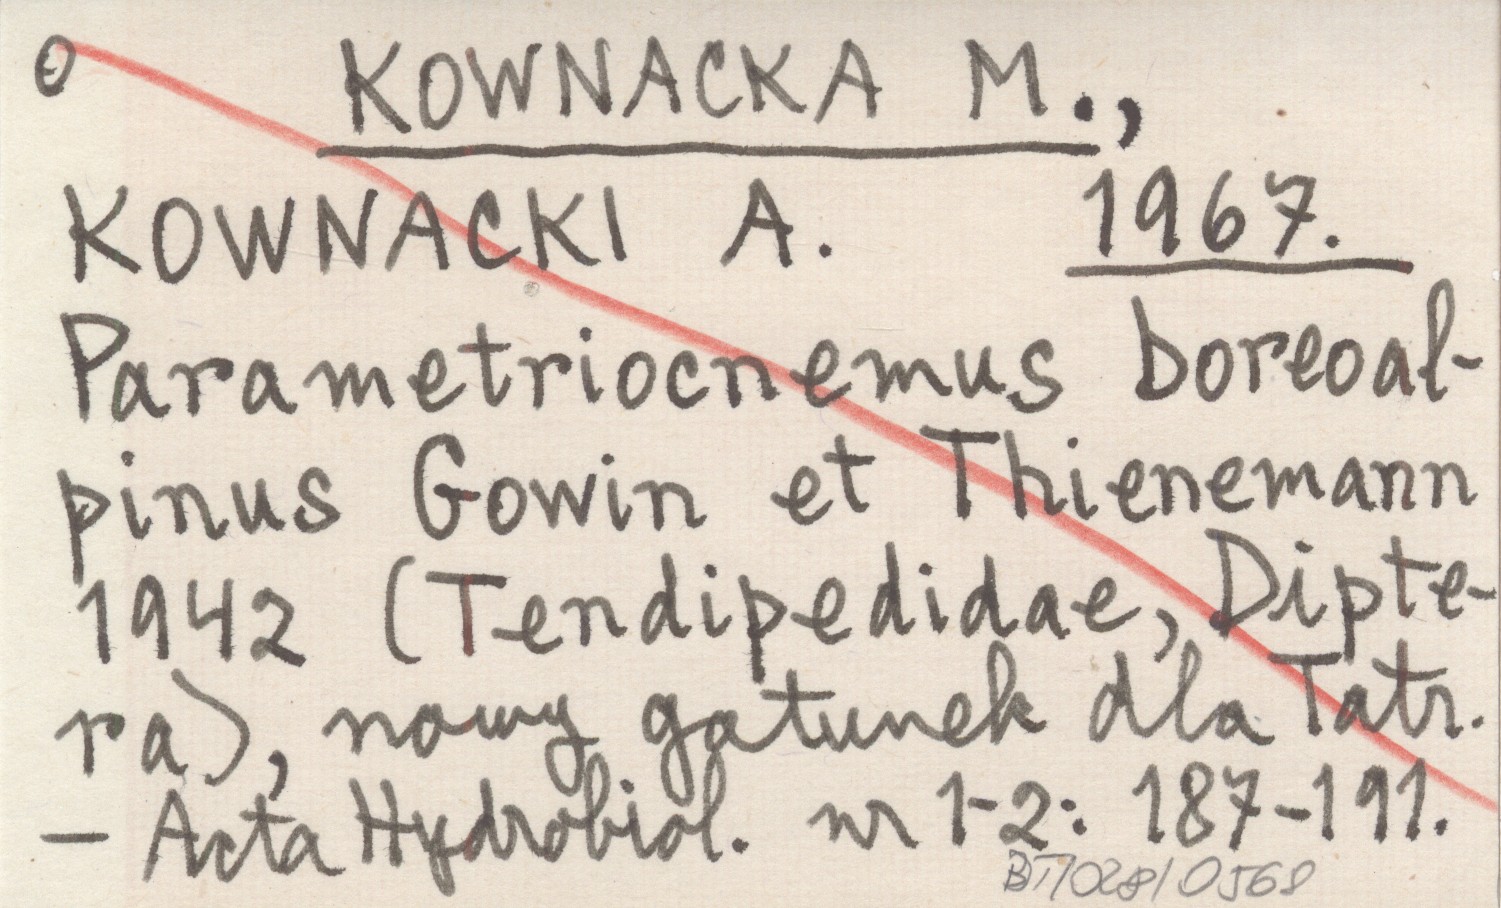 O KOWNACKA M.,
KOWNACKI A. 1967.
Parametriocnemus boreoal-
pinus Gowin et Thienemann
1942 (Tendipedidae, Dipte-
ra), nowy gatunek dla Tatr.
– Acta Hydrobiol. nr 1-2: 187-191.
BT/028/0568